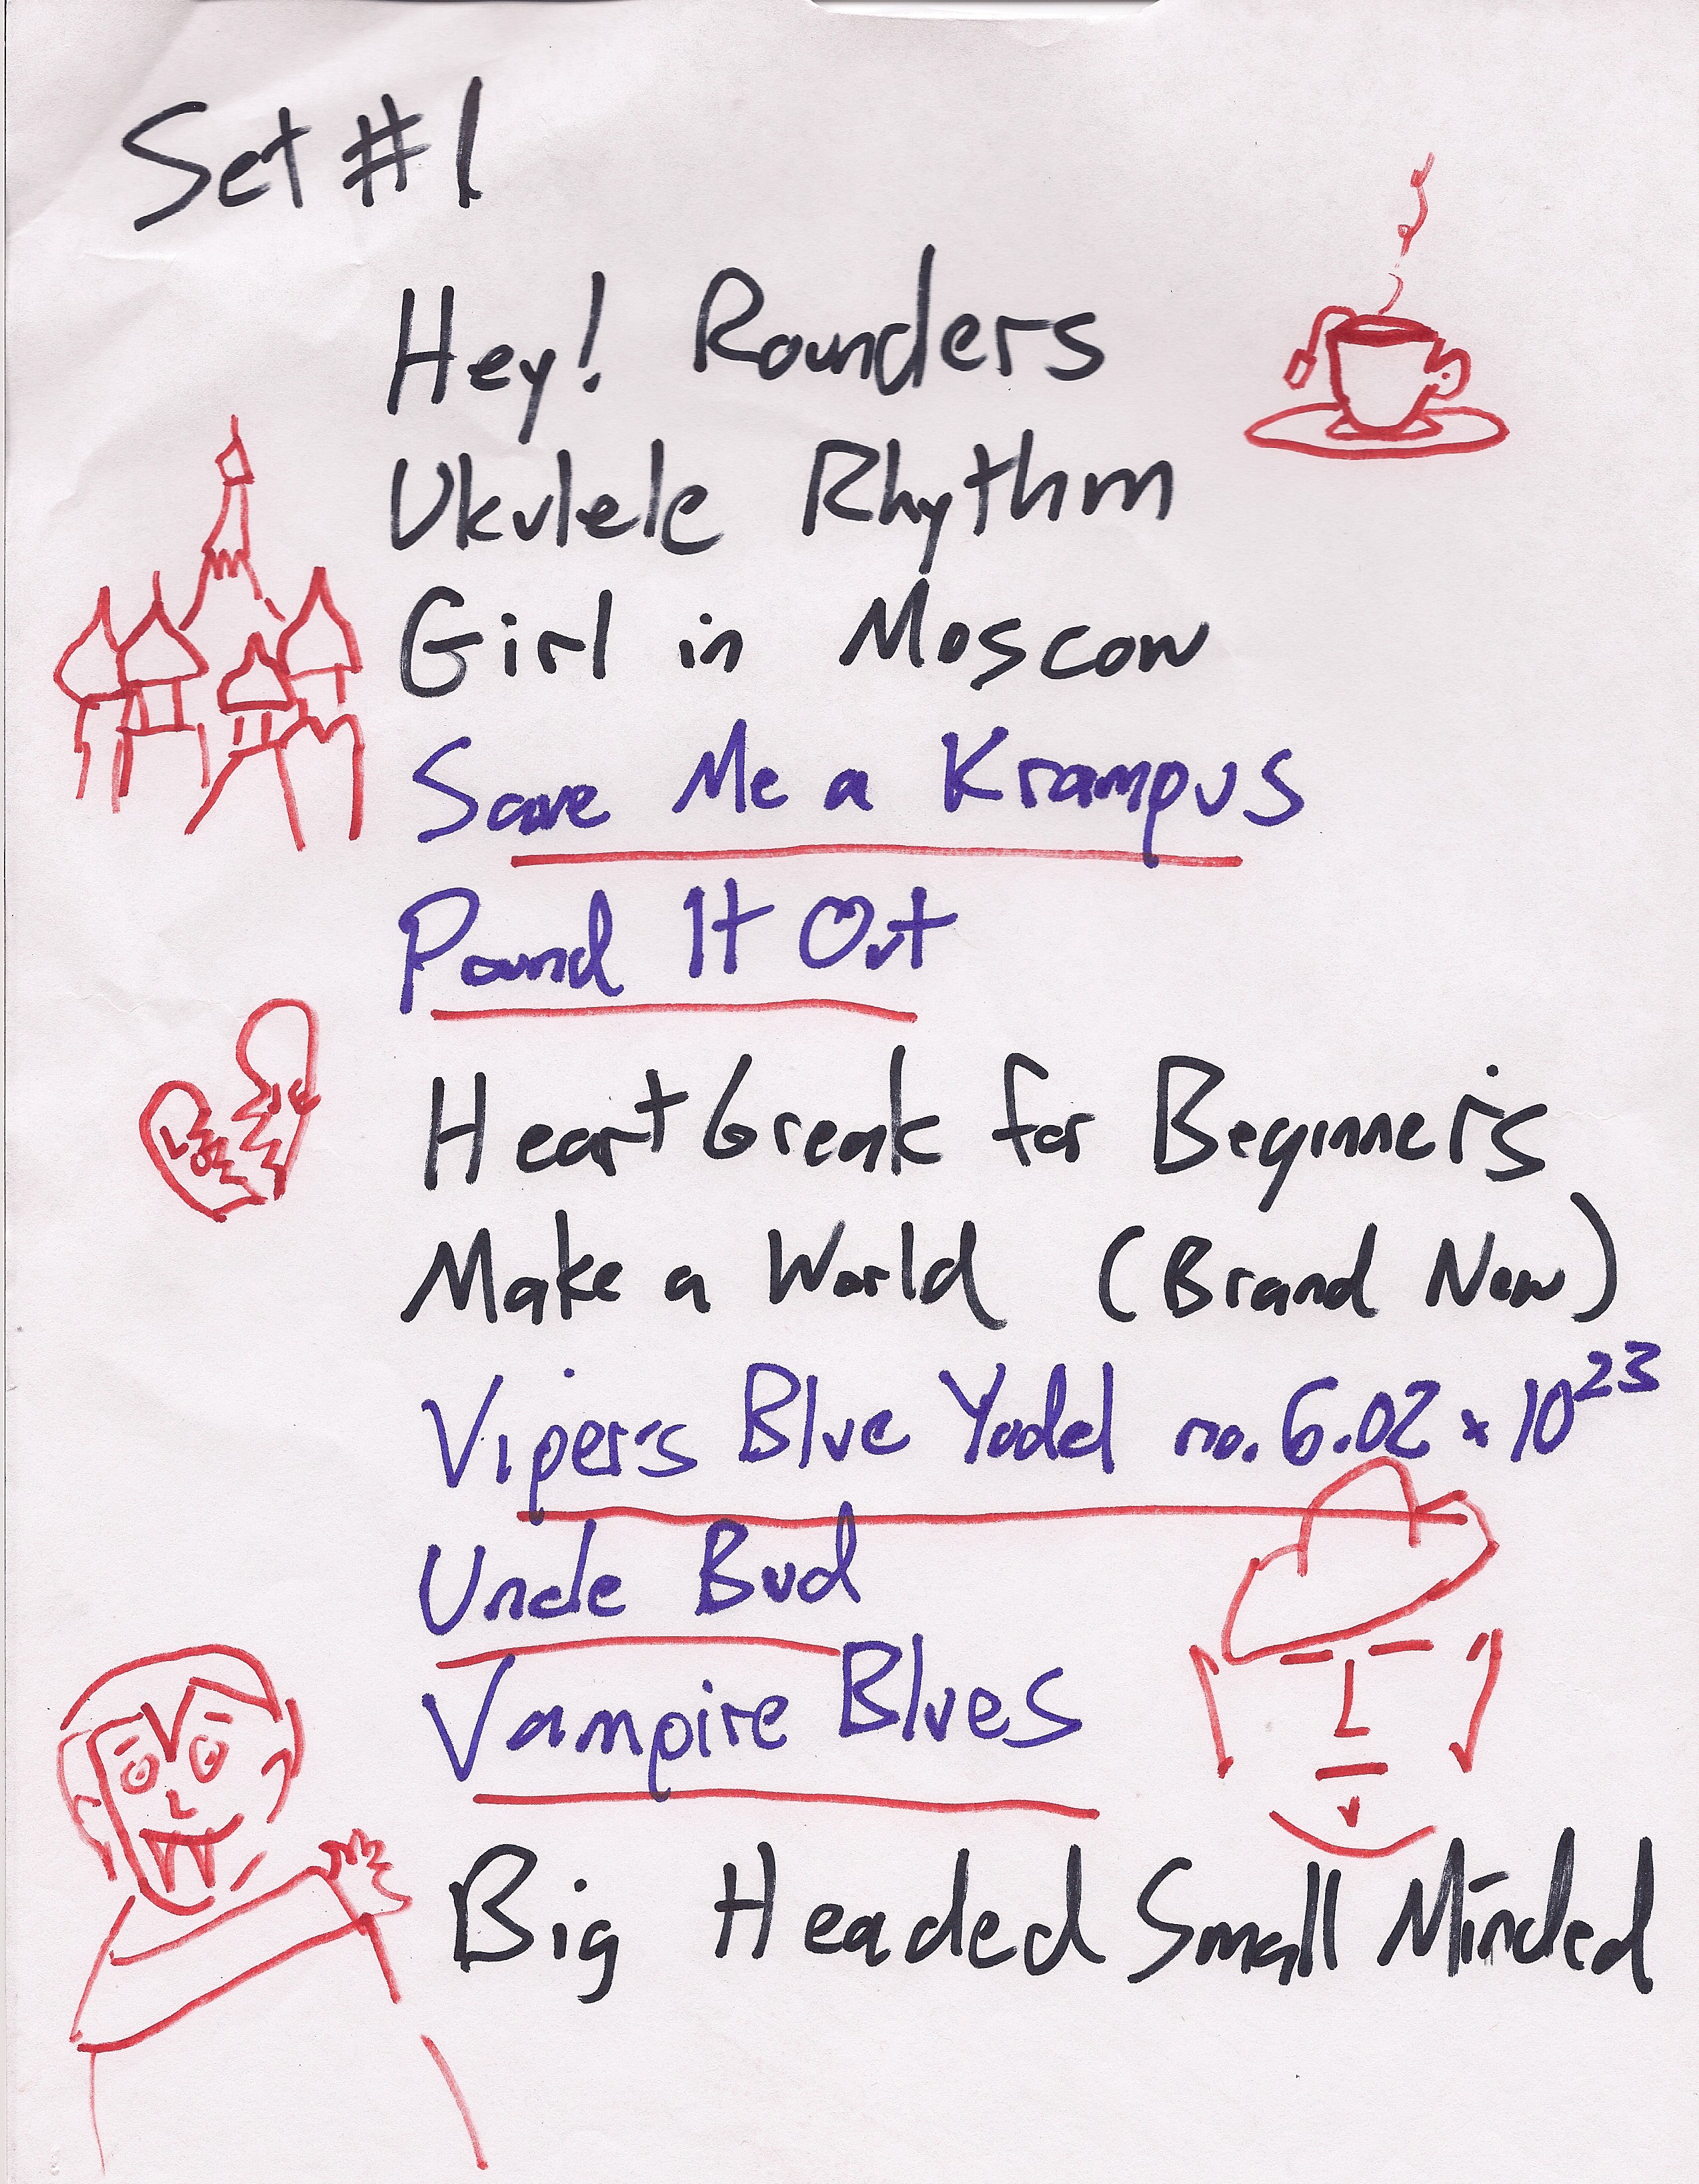 Set #1
Hey! Rounders
Ukulele Rhythm
Girl in Moscow
Save Me a Krampus
Pound It Out
Heartbreak for Beginners
Make a World (Brand New)
Viper's Blue Yodel no. 6.02 x 10²³
Uncle Bud
Vampire Blues
Big Headed Small Minded